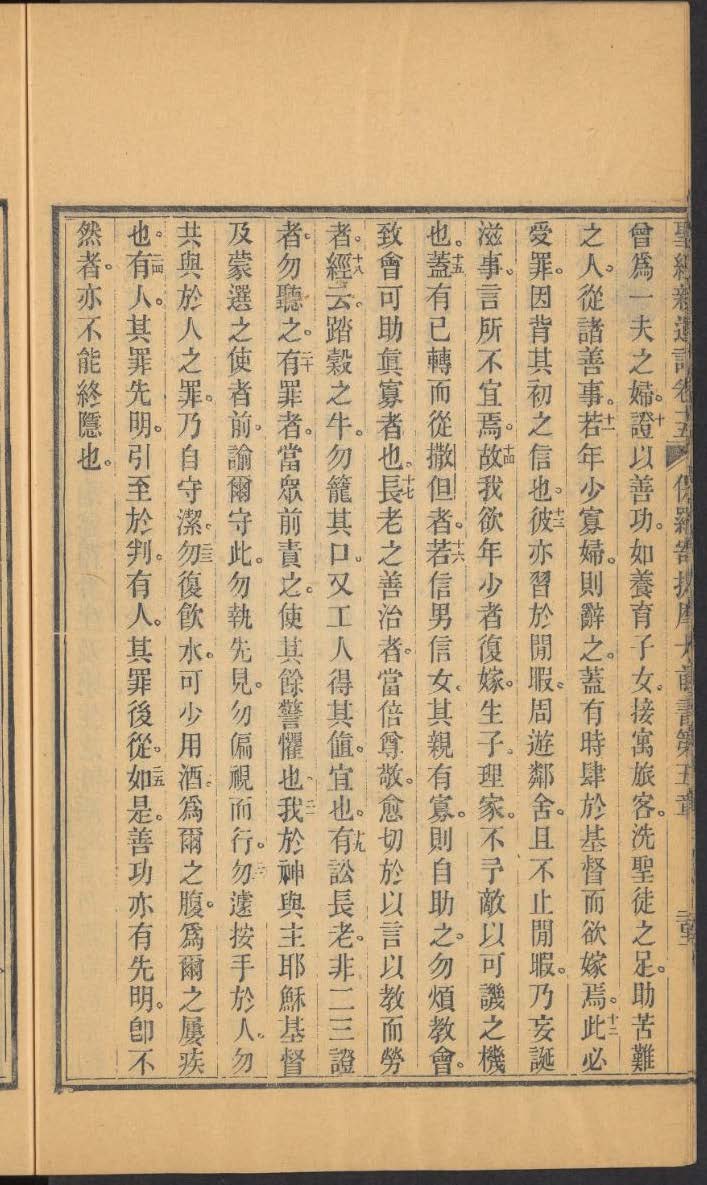 聖經新遺詔卷十五 保羅寄提摩太前書第五章
曾爲一夫之婦。十證以善功。如養育子女。接寓旅客。洗聖徒之足。助苦難
之人。從諸善事。十一若年少寡婦。則辭之。蓋有時肆於基督而欲嫁焉。十二此必
受罪。因背其初之信也。十三彼亦習於閒暇。周遊鄰舍。且不止閒暇。乃妄誕
滋事。言所不宜焉。十四故我欲年少者復嫁。生子。理家。不予敵以可譏之機
也。十五蓋有已轉而從撒但者。十六若信男信女。其親有寡。則自助之。勿煩敎會。
致會可助眞寡者也。十七長老之善治者。當倍尊敬。愈切於以言以敎而勞
者。十八經云。踏穀之牛。勿籠其口。又工人得其値。宜也。十九有訟長老。非二三證
者。勿聽之。二十有罪者。當眾前責之。使其餘警懼也。二一我於神與主耶穌基督
及蒙選之使者前。諭爾守此。勿執先見。勿偏視而行。二二勿遽按手於人。勿
共與於人之罪。乃自守潔。二三勿復飮水。可少用酒。爲爾之腹。爲爾之屢疾
也。二四有人。其罪先明。引至於判。有人。其罪後從。二五如是。善功亦有先明。卽不
然者。亦不能終隱也。